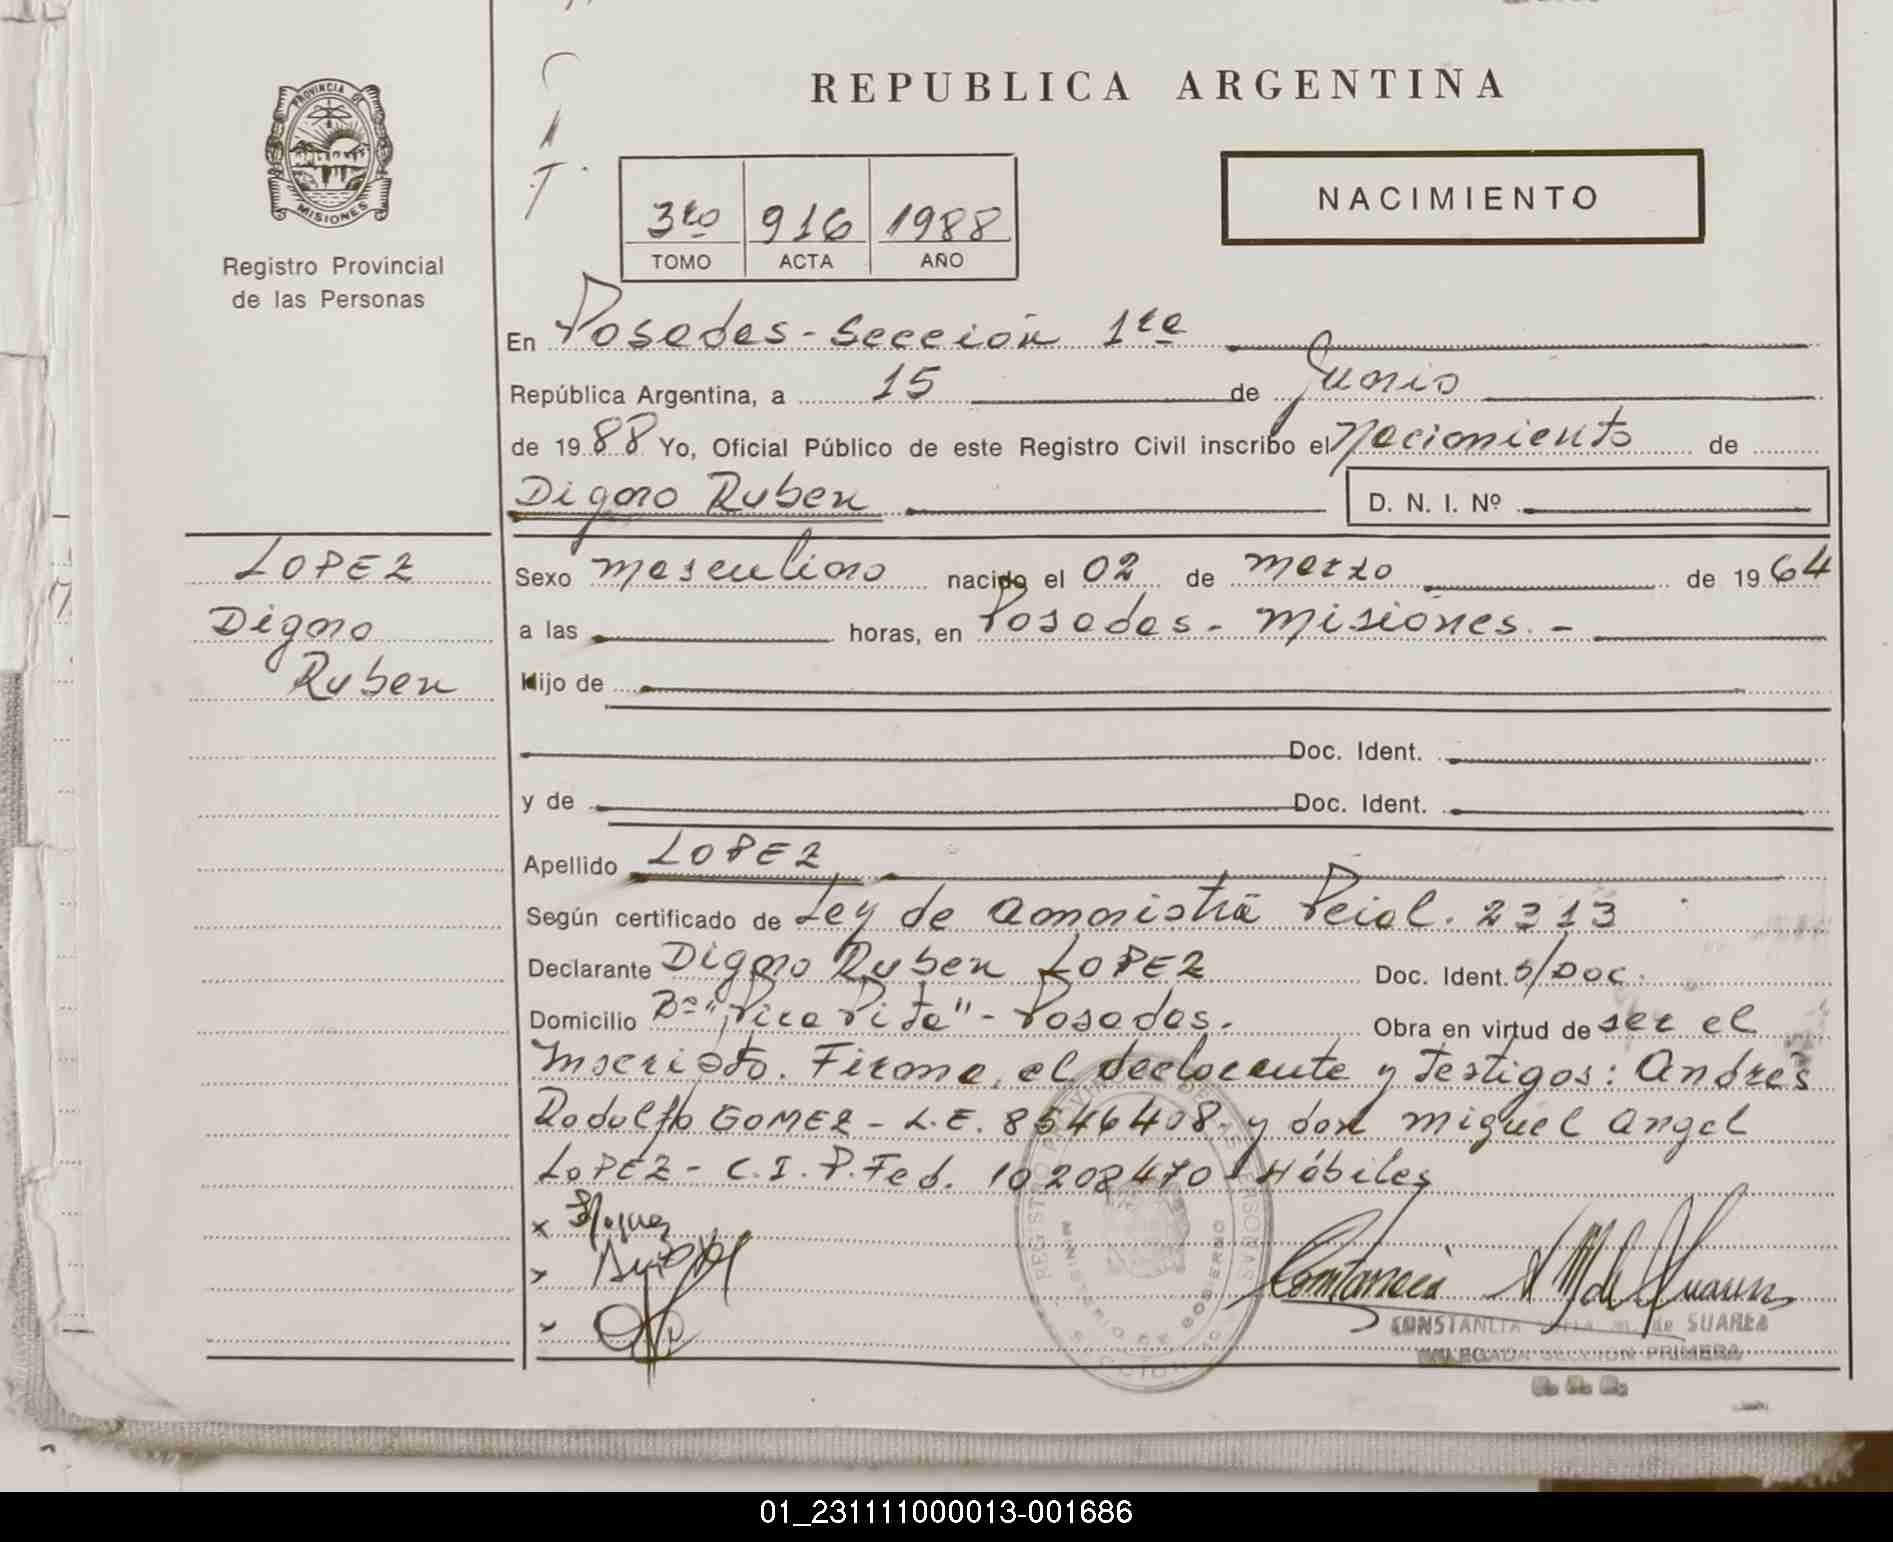 REPUBLICA ARGENTINA
PROVINCIA DE
MISIONES
Registro Provincial
de las Personas
NACIMIENTO
3ro 916 1988
TOMO ACTA AÑO
En Posadas - Sección 1ra
República Argentina, a 15 de Junio
de 1988 Yo, Oficial Público de este Registro Civil inscribo el Nacimiento de
Digno Ruben D. N. I. Nº
LOPEZ
Digno
Ruben
Sexo masculino nacido el 02 de marzo de 1964
a las horas, en Posadas - Misiones. -
Hijo de
Doc. Ident.
y de Doc. Ident.
Apellido LOPEZ
Según certificado de Ley de Amnistía Pcial. 2313
Declarante Digno Ruben LOPEZ Doc. Ident. s/Doc.
Domicilio Bº "Pira Pita" - Posadas. Obra en virtud de ser el
Inscripto. Firma, el declarante y testigos: Andrés
Rodolfo GOMEZ - L.E. 8546408 - y don Miguel Angel
LOPEZ - C.I.P.Fed. 10208470 - Hábiles
REGISTRO PROVINCIAL DE LAS PERSONAS
MINISTERIO DE GOBIERNO
Constancia M de Suarez
CONSTANCIA m. de SUAREZ
DELEGADA SECCION PRIMERA
01_231111000013-001686